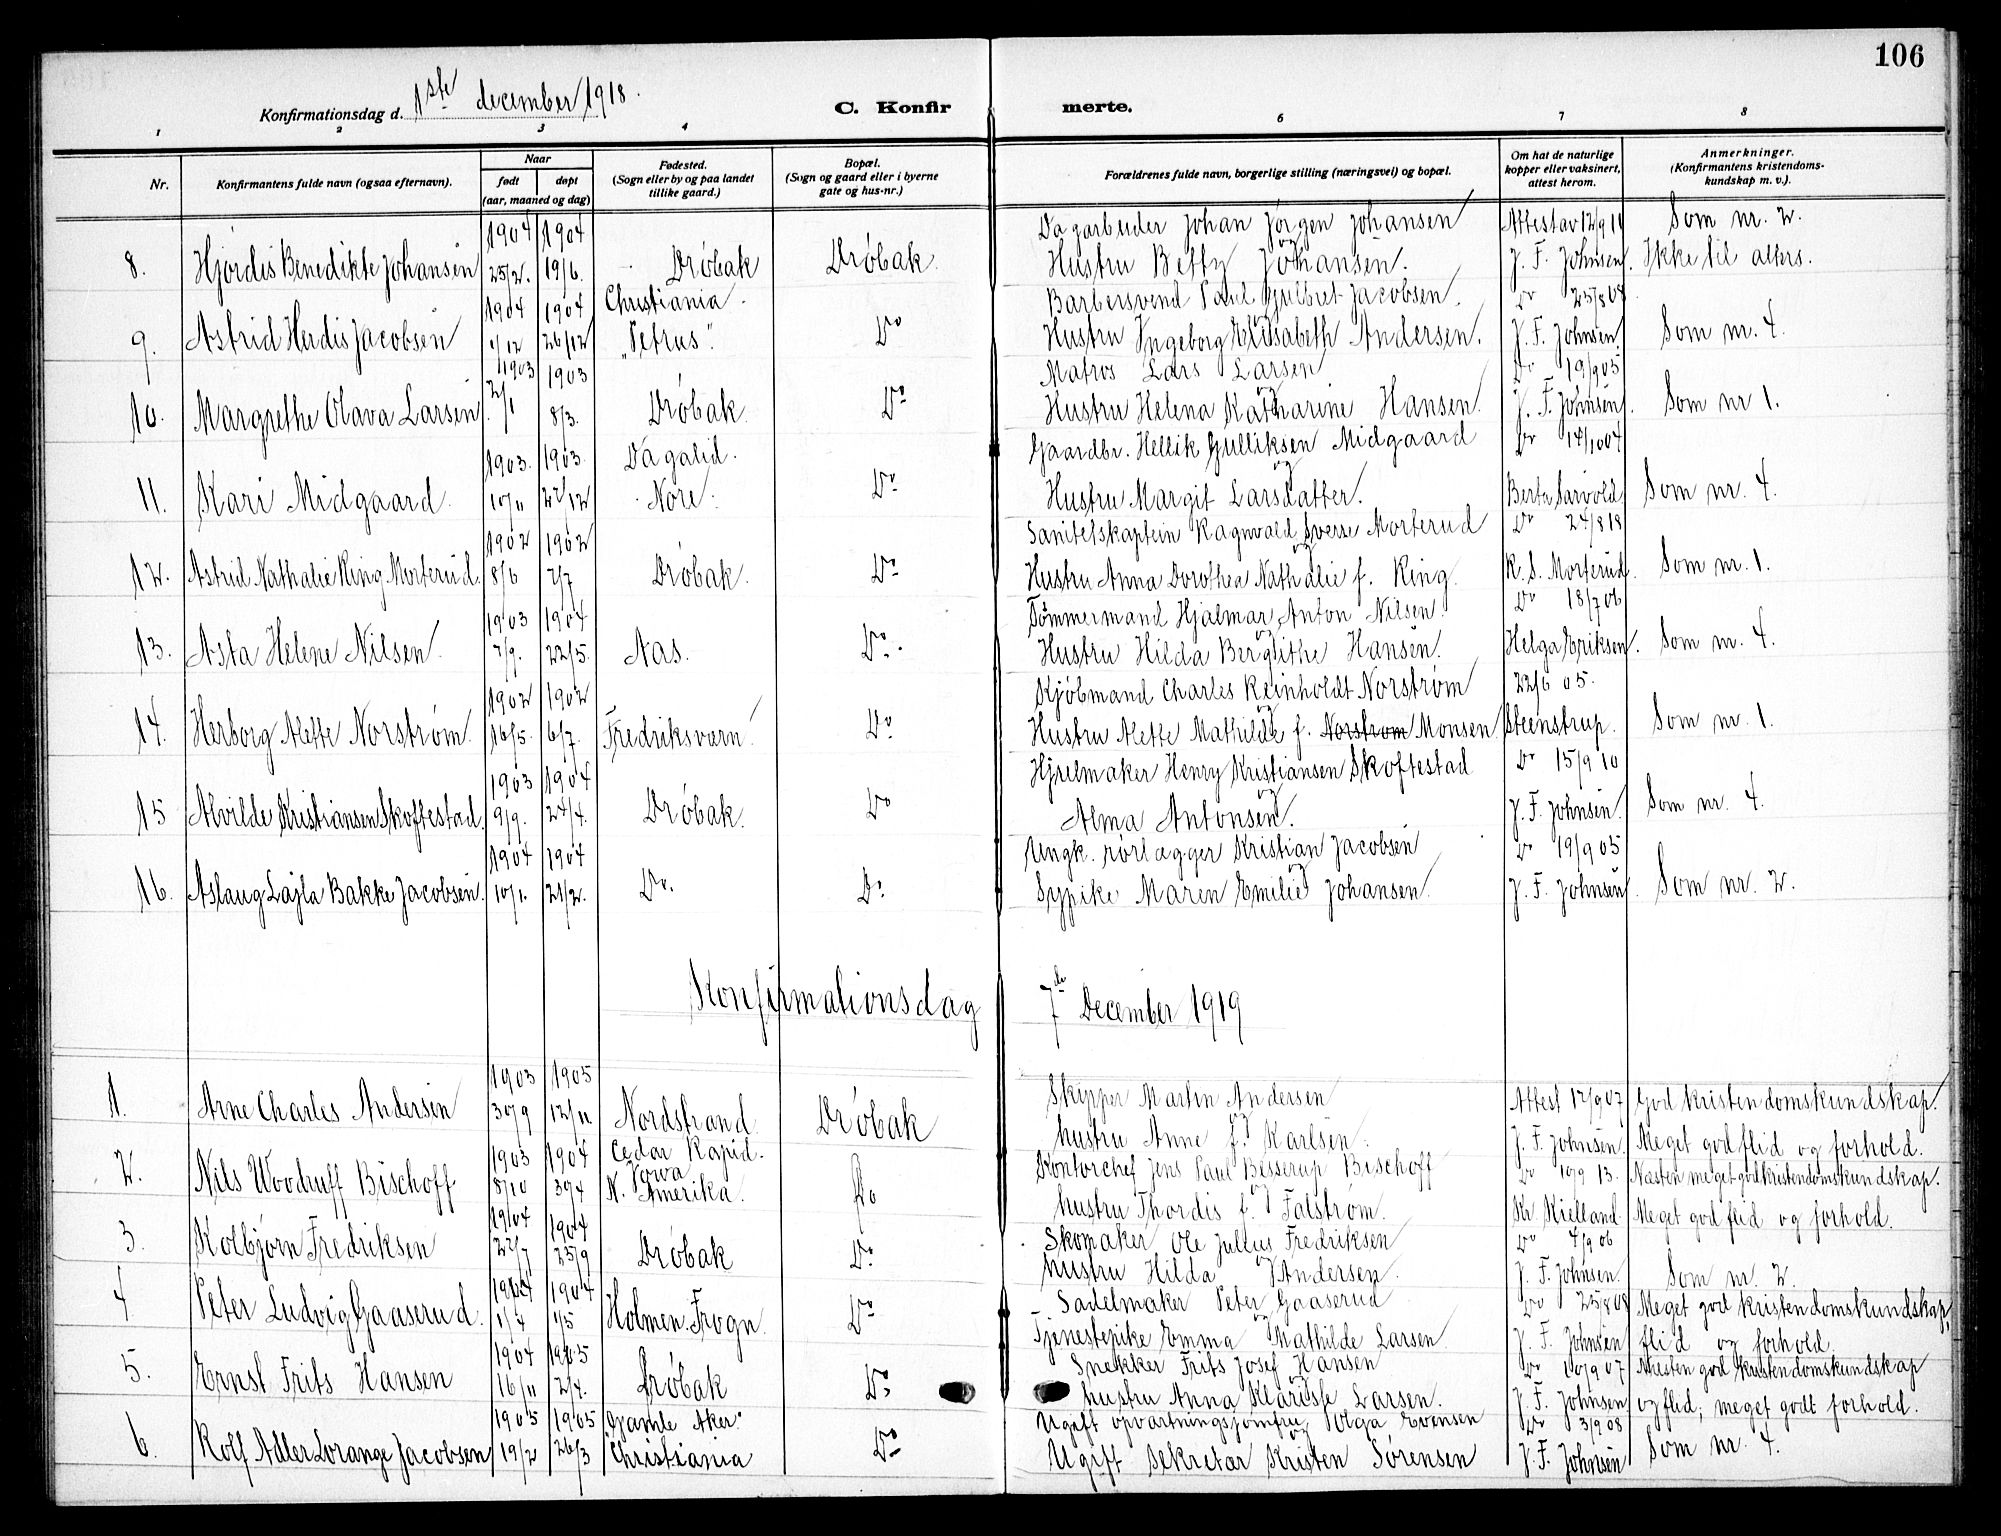 106
Konfirmationsdag d. 1ste december 1918.
C. Konfir merte.
1 2 3 4 6 7 8
Nr.
Konfirmantens fulde navn (ogsaa efternavn).
Naar
født døpt
(aar, maaned og dag)
Fødested.
(Sogn eller by og paa landet
tillike gaard.)
Bopæl.
(Sogn og gaard eller i byerne
gate og hus-nr.)
Forældrenes fulde navn, borgerlige stilling (næringsvei) og bopæl.
Om hat de naturlige
kopper eller vaksinert,
attest herom.
Anmerkninger.
(Konfirmantens kristendoms-
kundskap m. v.).
1904 1904 Dagarbeider Johan Jørgen Johansen Attest av 12/9 Som nr. 2.
8. Hjørdis Benedikte Johansen 25/2. 19/6. Drøbak Drøbak. Hustru Betty Johansen. J. F. Johnsen. Ikke til alters.
1904 1904 Christiania. Barbersvend Paul Gulbret Jacobsen. Do 25/8 08
9. Astrid Herdis Jacobsen 1/12 26/12 "Petrus". Do Hustru Ingeborg Elisabeth Andersen. J. F. Johnsen. Som nr. 4.
1903 1903 Matros Lars Larsen Do 19/9 05
10. Margrethe Olava Larsen 2/1 8/3. Drøbak. Do Hustru Helena Katharine Hansen. J. F. Johnsen. Som nr 1.
1903. 1903. Dagalid. Gaardbr. Hellik Gulliksen Midgaard Do 14/10 04
11. Kari Midgaard. 10/11 27/12 Nore. Do Hustru Margit Larsdatter. Berta Sarvold Som nr. 4.
1902 1902 Sanitetskaptein Ragnvald Sverre Morterud Do 24/8 18
12. Astrid Nathalie Ring Morterud. 8/6 7/7 Drøbak. Do Hustru Anna Dorothea Nathalie f. Ring. R. S. Morterud. Som nr. 1.
1903 1904 Tømmermand Hjalmar Anton Nilsen. Do 18/7 06
13. Asta Helene Nilsen. 7/9. 22/5. Aas. Do Hustru Hilda Bergithe Hansen. Helga Eriksen. Som nr. 4.
1902 1902 Kjøbmand Charles Reinholdt Norstrøm 22/6 05.
14. Herborg Alette Norstrøm. 16/5. 6/7. Fredriksværn. Do Hustru Alette Mathilde f. Norstrøm Monsen Steenstrup. Som nr. 1.
1903 1904 Hjulmaker Henry Kristiansen Skoftestad Do 15/9 10
15 Alvilde Kristiansen Skoftestad. 9/9. 24/4. Drøbak. Do Alma Antonsen. J. F. Johnsen. Som nr. 4.
1904 1904 Ungk. rørlægger Kristian Jacobsen Do 19/9 05
16. Aslaug Lajla Bakke Jacobsen. 10/1. 21/2. Do. Do Sypike Maren Emilie Johansen. J. F. Johnsen. Som nr. 2.
Konfirmationsdag 7de December 1919
1903 1905 Skipper Martin Andersen Attest 17/9 07 God kristendomskundskap.
1. Arne Charles Andersen 30/9 12/11 Nordstrand. Drøbak hustru Anne f. Karlsen. J. F. Johnsen. Meget god flid og forhold.
1903 1904 Cedar Rapid. Kontorchef Jens Paul Besserup Bischoff Do 10/9 13. Næsten meget god kristendomskundskap.
2. Nils Woodruff Bischoff 8/10 30/4 Iowa N. Amerika. Do hustru Thordis f. Falstrøm. Kr. Kielland Meget god flid og forhold.
1904 1904 Skomaker Ole Julius Fredriksen Do 4/9 06
3. Kolbjørn Fredriksen 22/7 25/9 Drøbak Do hustru Hilda Andersen. J. F. Johnsen. Som nr. 2.
1904 1904 Sadelmaker Peter Gaaserud Do 25/8 08 Meget god kristendomskundskap,
4 Peter Ludvig Gaaserud. 1/4 1/5 Holmen. Frogn. Do Tjenestepike Emma Mathilde Larsen. J. F. Johnsen flid og forhold.
1904 1905 Snekker Frits Josef Hansen Do 10/9 07 Næsten god kristendomskundskap
5. Ernst Frits Hansen 16/11 2/4. Drøbak Do hustru Anna Larsen. J. F. Johnsen og flid, meget godt forhold.
1905 1905 Gamle Aker. Ugift opvartningsjomfru Olga Evensen Do 3/9 08
6. Rolf Adler Lorange Jacobsen 19/2 26/3 Christiania Do Ugift sekretær Kristen Sørensen J. F. Johnsen Som nr. 4.